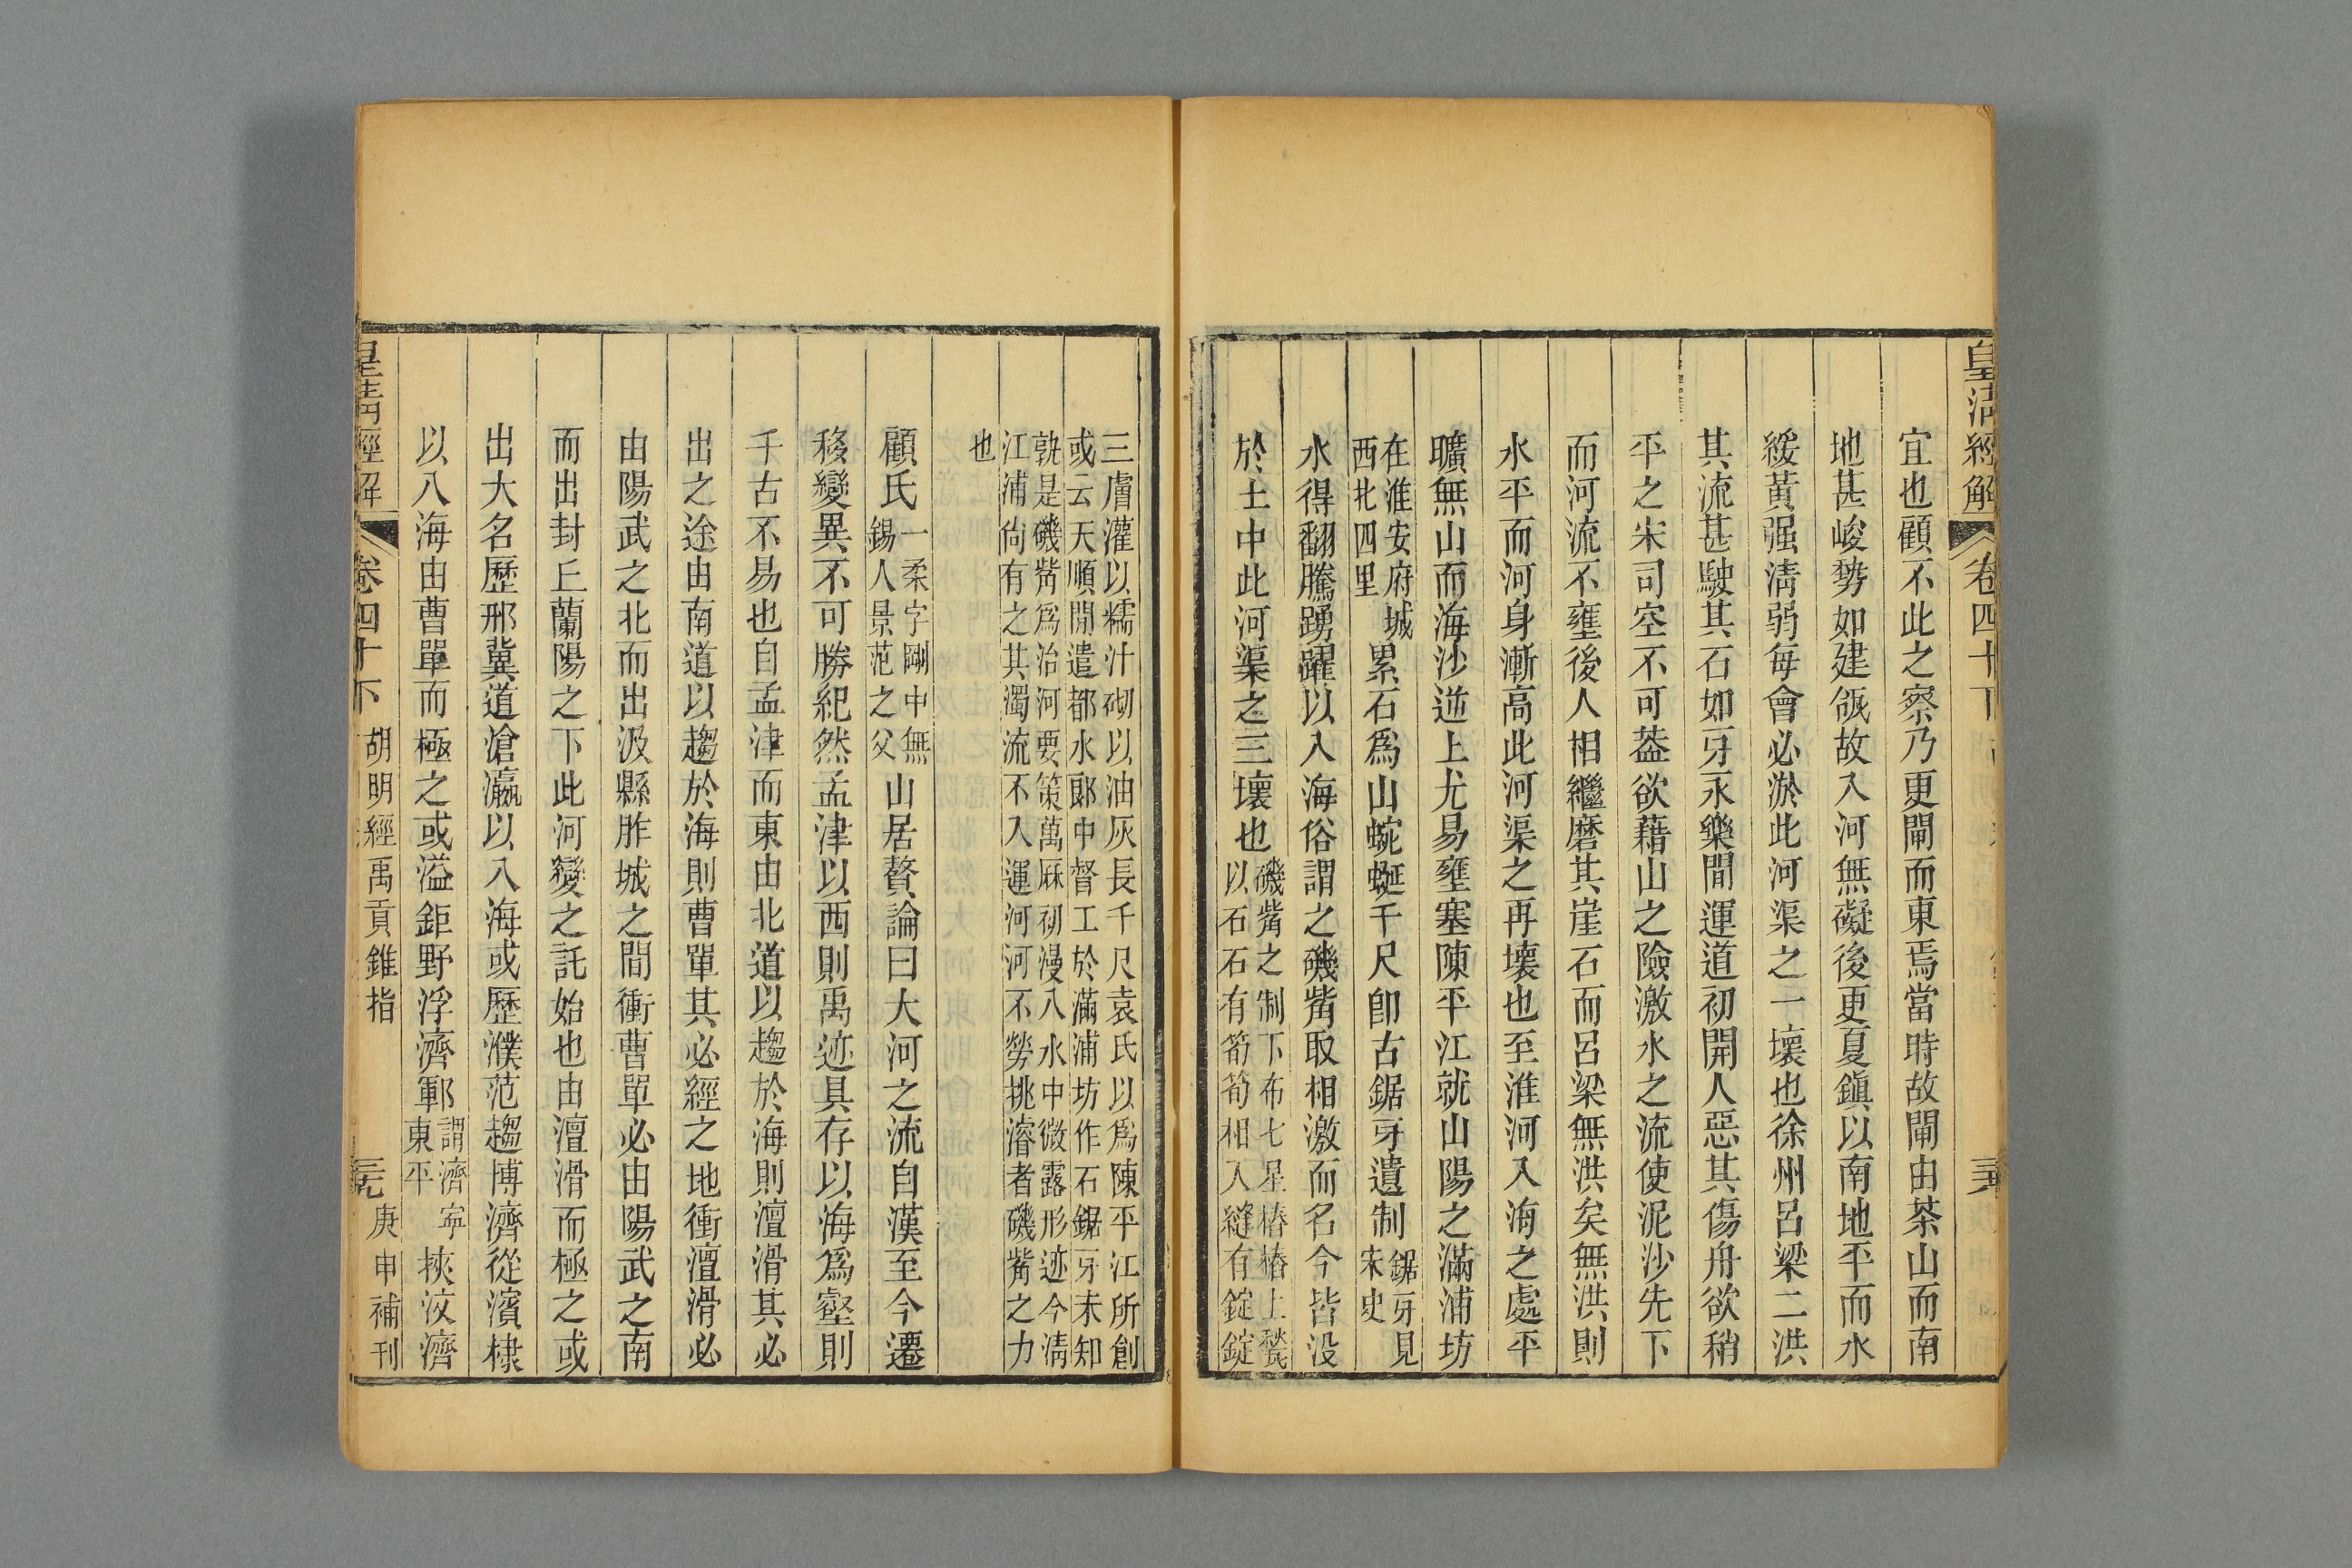 皇清經解 卷四十下
宜也顧不此之察乃更閘而東焉當時故閘由茶山而南
地甚峻勢如建瓴故入河無礙後更夏鎭以南地平而水
緩黃强淸弱每會必淤此河渠之一壞也徐州呂梁二洪
其流甚駛其石如牙永樂間運道初開人惡其傷舟欲稍
平之宋司空不可葢欲藉山之險激水之流使泥沙先下
而河流不壅後人相繼磨其崖石而呂梁無洪矣無洪則
水平而河身漸高此河渠之再壞也至淮河入海之處平
曠無山而海沙逆上尤易壅塞陳平江就山陽之滿浦坊
在淮安府城
西北四里
累石爲山蜿蜒千尺卽古鋸牙遺制
鋸牙見
宋史
水得翻騰踴躍以入海俗謂之磯觜取相激而名今皆没
於土中此河渠之三壞也
磯觜之制下布七星樁樁上甃
以石石有筍筍相入縫有錠錠
三膚灌以糯汁砌以油灰長千尺袁氏以爲陳平江所創
或云天順閒遣都水郎中督工於滿浦坊作石鋸牙未知
孰是磯觜爲治河要策萬厤初漫八水中微露形迹今淸
江浦尙有之其濁流不入運河河不勞挑濬者磯觜之力
也
顧氏
一柔字剛中無
錫人景范之父
山居贅論曰大河之流自漢至今遷
移變異不可勝紀然孟津以西則禹迹具存以海爲壑則
千古不易也自孟津而東由北道以趨於海則澶滑其必
出之途由南道以趨於海則曹單其必經之地衝澶滑必
由陽武之北而出汲縣胙城之間衝曹單必由陽武之南
而出封丘蘭陽之下此河變之託始也由澶滑而極之或
出大名歷邢冀道滄瀛以入海或歷濮范趨博濟從濱棣
以入海由曹單而極之或溢鉅野浮濟鄆
謂濟寕
東平
挾汶濟
皇淸經解 卷四十下 胡明經禹貢錐指 庚申補刊